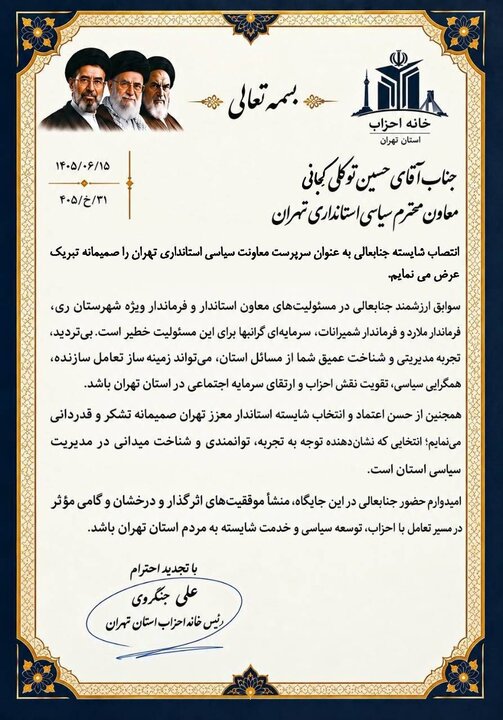 بسمه تعالی
خانه احزاب
استان تهران
۱۴۰۵/۰۶/۱۵
۴۰۵/خ/۳۱
جناب آقای حسین توکلی کجانی
معاون محترم سیاسی استانداری تهران
انتصاب شایسته جنابعالی به عنوان سرپرست معاونت سیاسی استانداری تهران را صمیمانه تبریک
عرض می نمایم.
سوابق ارزشمند جنابعالی در مسئولیت‌های معاون استاندار و فرماندار ویژه شهرستان ری،
فرماندار ملارد و فرماندار شمیرانات، سرمایه‌ای گرانبها برای این مسئولیت خطیر است. بی‌تردید،
تجربه مدیریتی و شناخت عمیق شما از مسائل استان، می‌تواند زمینه ساز تعامل سازنده،
همگرایی سیاسی، تقویت نقش احزاب و ارتقای سرمایه اجتماعی در استان تهران باشد.
همچنین از حسن اعتماد و انتخاب شایسته استاندار معزز تهران صمیمانه تشکر و قدردانی
می‌نمایم؛ انتخابی که نشان‌دهنده توجه به تجربه، توانمندی و شناخت میدانی در مدیریت
سیاسی استان است.
امیدوارم حضور جنابعالی در این جایگاه، منشأ موفقیت‌های اثرگذار و درخشان و گامی مؤثر
در مسیر تعامل با احزاب، توسعه سیاسی و خدمت شایسته به مردم استان تهران باشد.
با تجدید احترام
علی جنگروی
رئیس خانه احزاب استان تهران